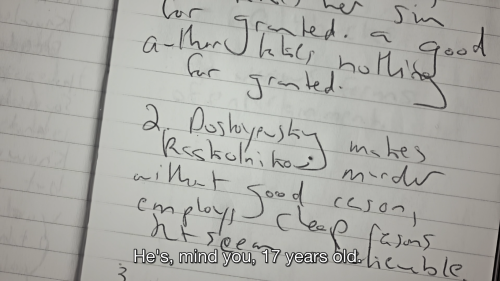 her sin
for granted. a good
author takes nothing
for granted.
2. Dostoyevsky makes
Raskolnikov murder
without good reason,
employs cheap
not seem
He's, mind you, 17 years old.
3